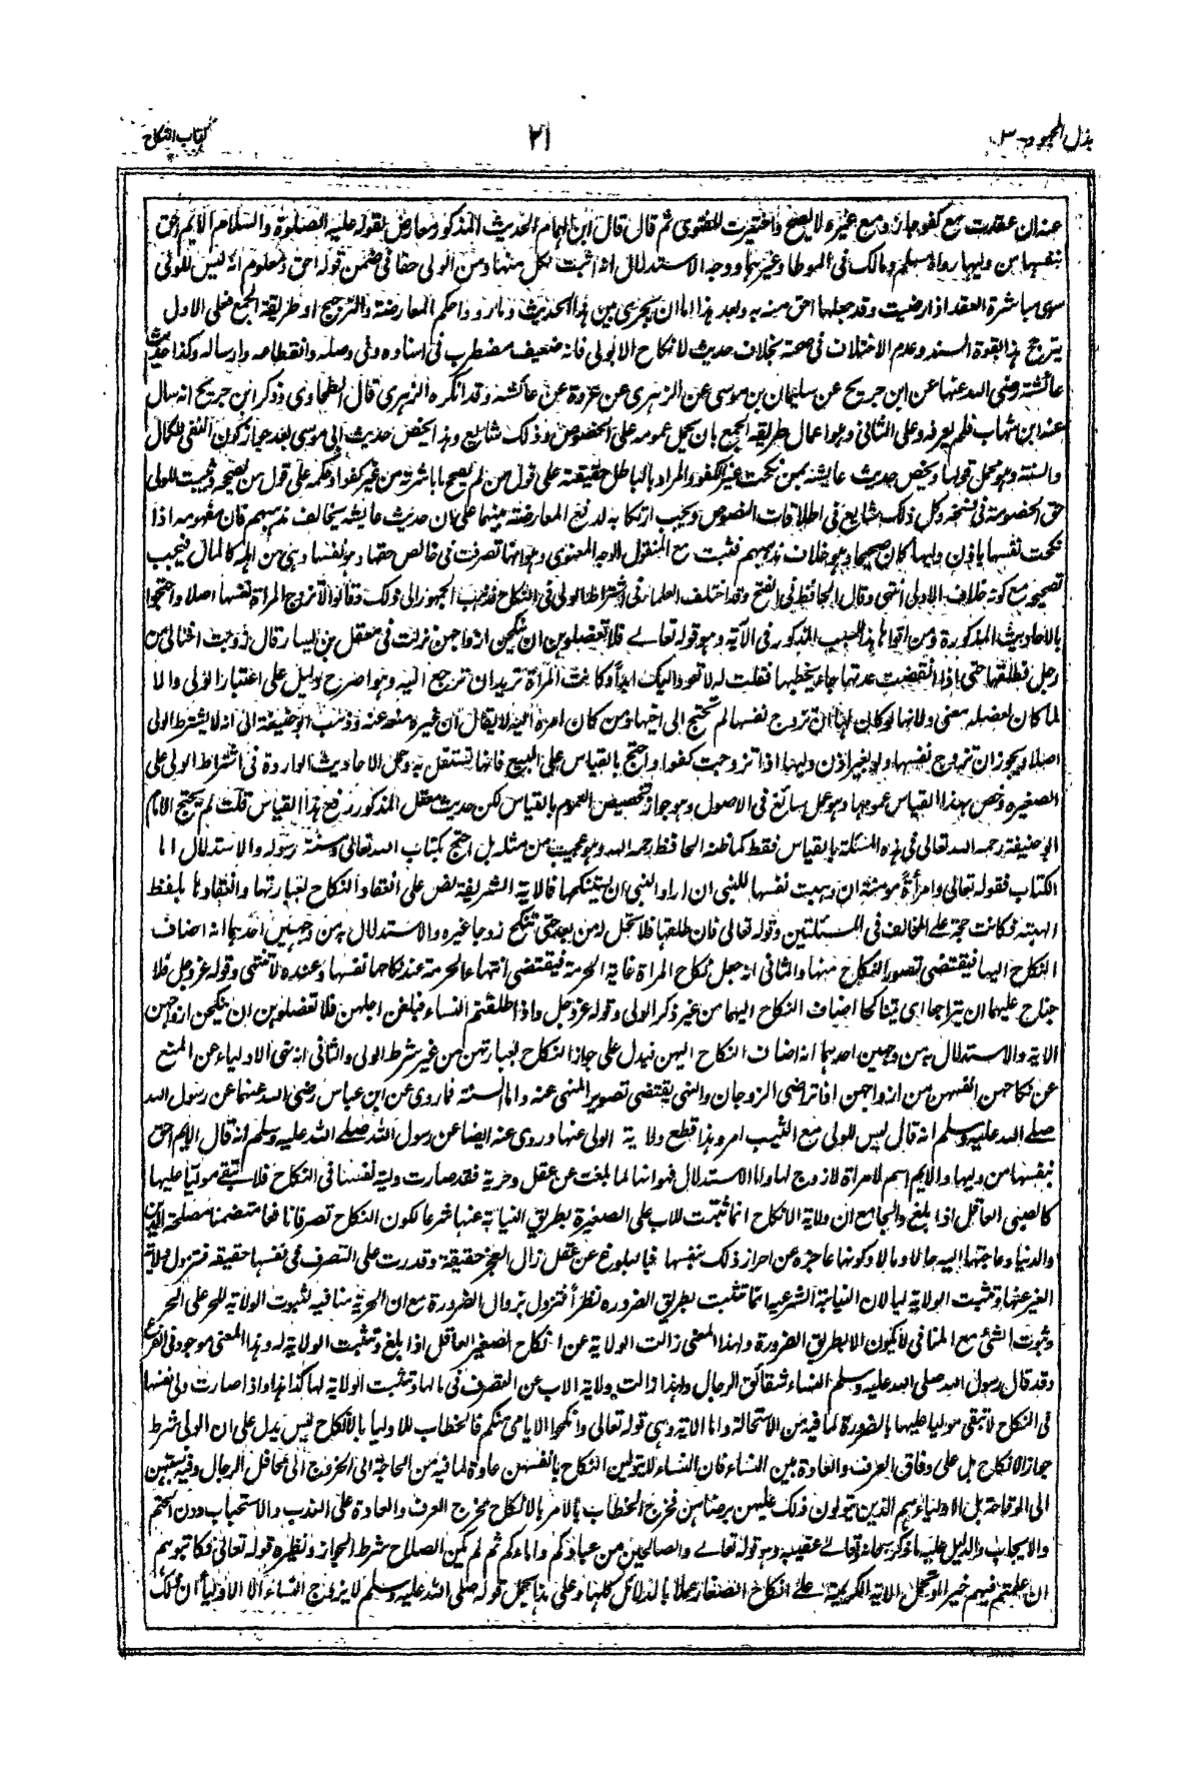 بذل المجهود-٣
٢١
كتاب النكاح
عنه ان عقدت مع كفو جاز ومع غيره لا يصح واختيرت للفتوى ثم قال قال ابن الهمام الحديث المذكور معارض بقوله عليه الصلوة والسلام الايم احق
بنفسها من وليها رواه مسلم ومالك فى الموطا وغيرهما ووجه الاستدلال انه اثبت لكل منها ومن الولى حقا فى ضمن قوله احق ومعلوم انه ليس للولى
سوى مباشرة العقد اذا رضيت وقد جعلها احق منه به وبعد هذا اما ان يجرى بين هذا الحديث وما رووا حكم المعارضة والترجيح او طريقة الجمع فعلى الاول
يترجح هذا بقوة السند وعدم الاختلاف فى صحته بخلاف حديث لا نكاح الا بولى فانه ضعيف مضطرب فى اسناده وفى وصله وانقطاعه وارساله وكذا حديث
عائشة رضى الله عنها عن ابن جريج عن سليمان بن موسى عن الزهرى عن عروة عن عائشة وقد انكره الزهرى قال الطحاوى وذكر ابن جريج انه سال
عنه ابن شهاب فلم يعرفه وعلى الثانى وهو اعمال طريقة الجمع بان يحمل عمومه على الخصوص وذلك شايع وهذا يخص حديث ابى موسى بعد جواز كون النفى للكمال
والسنة وهو محمل قولها ويخص حديث عايشة بمن نكحت غير الكفو والمراد بالباطل حقيقته على قول من لم يصحح ما باشرته من غير كفو او حكمه على قول من يصححه ويثبت للولى
حق الخصومة فى فسخه وكل ذلك شايع فى اطلاقات النصوص ويجب ارتكابه لدفع المعارضة بينهما على ان حديث عايشة يخالف مذهبهم فان مفهومه اذا
نكحت نفسها باذن وليها كان صحيحا وهو خلاف مذهبهم فثبت مع المنقول الوجه المعنوى وهو انها تصرفت فى خالص حقها وهو نفسها وهى من اهله كالمال فيجب
تصحيحه مع كونه خلاف الاولى انتهى وقال الحافظ فى الفتح وقد اختلف العلماء فى اشتراط الولى فى النكاح فذهب الجمهور الى ذلك وقالوا لا تزوج المراة نفسها اصلا واحتجوا
بالاحاديث المذكورة ومن اقواها هذا السبب المذكور فى الآية وهو قوله تعالى فلا تعضلوهن ان ينكحن ازواجهن نزلت فى معقل بن يسار قال زوجت اختا لى من
رجل فطلقها حتى اذا انقضت عدتها جاء يخطبها فقلت له لا تعود اليك ابدا وكانت المراة تريد ان ترجع اليه وهو اصرح دليل على اعتبار الولى والا
لما كان لعضله معنى ولانها لو كان لها ان تزوج نفسها لم تحتج الى اخيها ومن كان امره اليه لا يقال ان غيره منعه عنه وذهب ابو حنيفة الى انه لا يشترط الولى
اصلا ويجوز ان تزوج نفسها ولو بغير اذن وليها اذا تزوجت كفوا واحتج بالقياس على البيع فانها تستقل به وحمل الاحاديث الواردة فى اشتراط الولى على
الصغيرة وخص بهذا القياس عمومها وهو عمل سائغ فى الاصول وهو جواز تخصيص العموم بالقياس لكن حديث معقل المذكور رفع هذا القياس قلت لم يحتج الامام
ابو حنيفة رحمه الله تعالى فى هذه المسئلة بالقياس فقط كما ظنه الحافظ رحمه الله وهو عجيب من مثله بل احتج بكتاب الله تعالى وسنة رسوله والاستدلال اما
الكتاب فقوله تعالى وامرأة مومنة ان وهبت نفسها للنبى ان اراد النبى ان يستنكحها فالاية الشريفة نص على انعقاد النكاح بعبارتها وانعقادها بلفظ
الهبة فكانت حجة على المخالف فى المسئلتين وقوله تعالى فان طلقها فلا تحل له من بعد حتى تنكح زوجا غيره والاستدلال به من وجهين احدهما انه اضاف
النكاح اليها فيقتضى تصور النكاح منها والثانى انه جعل نكاح المراة غاية الحرمة فيقتضى انتهاء الحرمة عند نكاحها نفسها وعنده لا تنتهى وقوله عز وجل فلا
جناح عليهما ان يتراجعا اى يتناكحا اضاف النكاح اليهما من غير ذكر الولى وقوله عز وجل واذا طلقتم النساء فبلغن اجلهن فلا تعضلوهن ان ينكحن ازواجهن
الاية والاستدلال به من وجهين احدهما انه اضاف النكاح اليهن فيدل على جواز النكاح بعبارتهن من غير شرط الولى والثانى انه نهى الاولياء عن المنع
عن نكاحهن انفسهن من ازواجهن اذا تراضى الزوجان والنهى يقتضى تصوير المنهى عنه واما السنة فما روى عن ابن عباس رضى الله عنهما عن رسول الله
صلى الله عليه وسلم انه قال ليس للولى مع الثيب امر وهذا قطع ولاية الولى عنها وروى عنه ايضا عن رسول الله صلى الله عليه وسلم انه قال الايم احق
بنفسها من وليها والايم اسم لامراة لا زوج لها واما الاستدلال فهو انها لما بلغت عن عقل وحرية فقد صارت ولية نفسها فى النكاح فلا تبقى موليا عليها
كالصبى العاقل اذا بلغ والجامع ان ولاية الانكاح انما ثبتت للاب على الصغيرة بطريق النيابة عنها شرعا لكون النكاح تصرفا نافعا متضمنا مصلحة الدين
والدنيا وحاجتها اليه حالا ومالا وكونها عاجزة عن احراز ذلك بنفسها فبالبلوغ عن عقل زال العجز حقيقة وقدرت على التصرف فى نفسها حقيقة فتزول ولاية
الغير عنها وتثبت الولاية لها لان النيابة الشرعية انما تثبت بطريق الضرورة نظرا فتزول بزوال الضرورة مع ان الحرية منافية لثبوت الولاية للحر على الحر
وثبوت الشئ مع المنافى لا يكون الا بطريق الضرورة ولهذا المعنى زالت الولاية عن انكاح الصغير العاقل اذا بلغ وتثبت الولاية له وهذا المعنى موجود فى الفرع
وقد قال رسول الله صلى الله عليه وسلم النساء شقائق الرجال ولهذا زالت ولاية الاب عن التصرف فى مالها وتثبت الولاية لها كذا هذا واذا صارت ولى نفسها
فى النكاح لا تبقى موليا عليها بالضرورة لما فيه من الاستحالة واما الاية وهى قوله تعالى وانكحوا الايامى منكم فالخطاب للاوليا بالانكاح ليس يدل على ان الولى شرط
جواز الانكاح بل على وفاق العرف والعادة بين النساء فان النساء لا يتولين النكاح بانفسهن عادة لما فيه من الحاجة الى الخروج الى محافل الرجال وفيه نسبتهن
الى الوقاحة بل الاولياء هم الذين يتولون ذلك عليهن برضاهن فخرج الخطاب بالامر بالانكاح مخرج العرف والعادة على الندب والاستحباب دون الحتم
والايجاب والدليل عليه ما ذكر سبحانه وتعالى عقيبه وهو قوله تعالى والصالحين من عبادكم وامائكم ثم لم يكن الصلاح شرط الجواز ونظيره قوله تعالى فكاتبوهم
ان علمتم فيهم خيرا او تحمل الاية الكريمة على انكاح الصغار عملا بالدلائل كلها وعلى هذا يحمل قوله صلى الله عليه وسلم لا يزوج النساء الا الاولياء ان ذلك